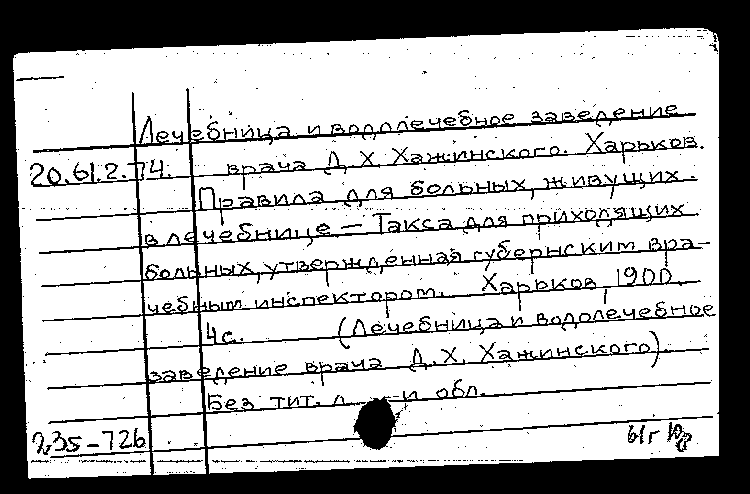 Лечебница и водолечебное заведение
20.61.2.74. врача Д. Х. Хажинского. Харьков.
Правила для больных, живущих
в лечебнице – Такса для приходящих
больных, утвержденная губернским вра-
чебным инспектором. Харьков, 1900.
4 с. (Лечебница и водолечебное
заведение врача Д. Х. Хажинского).
Без тит. л. и обл.
235-726
61г